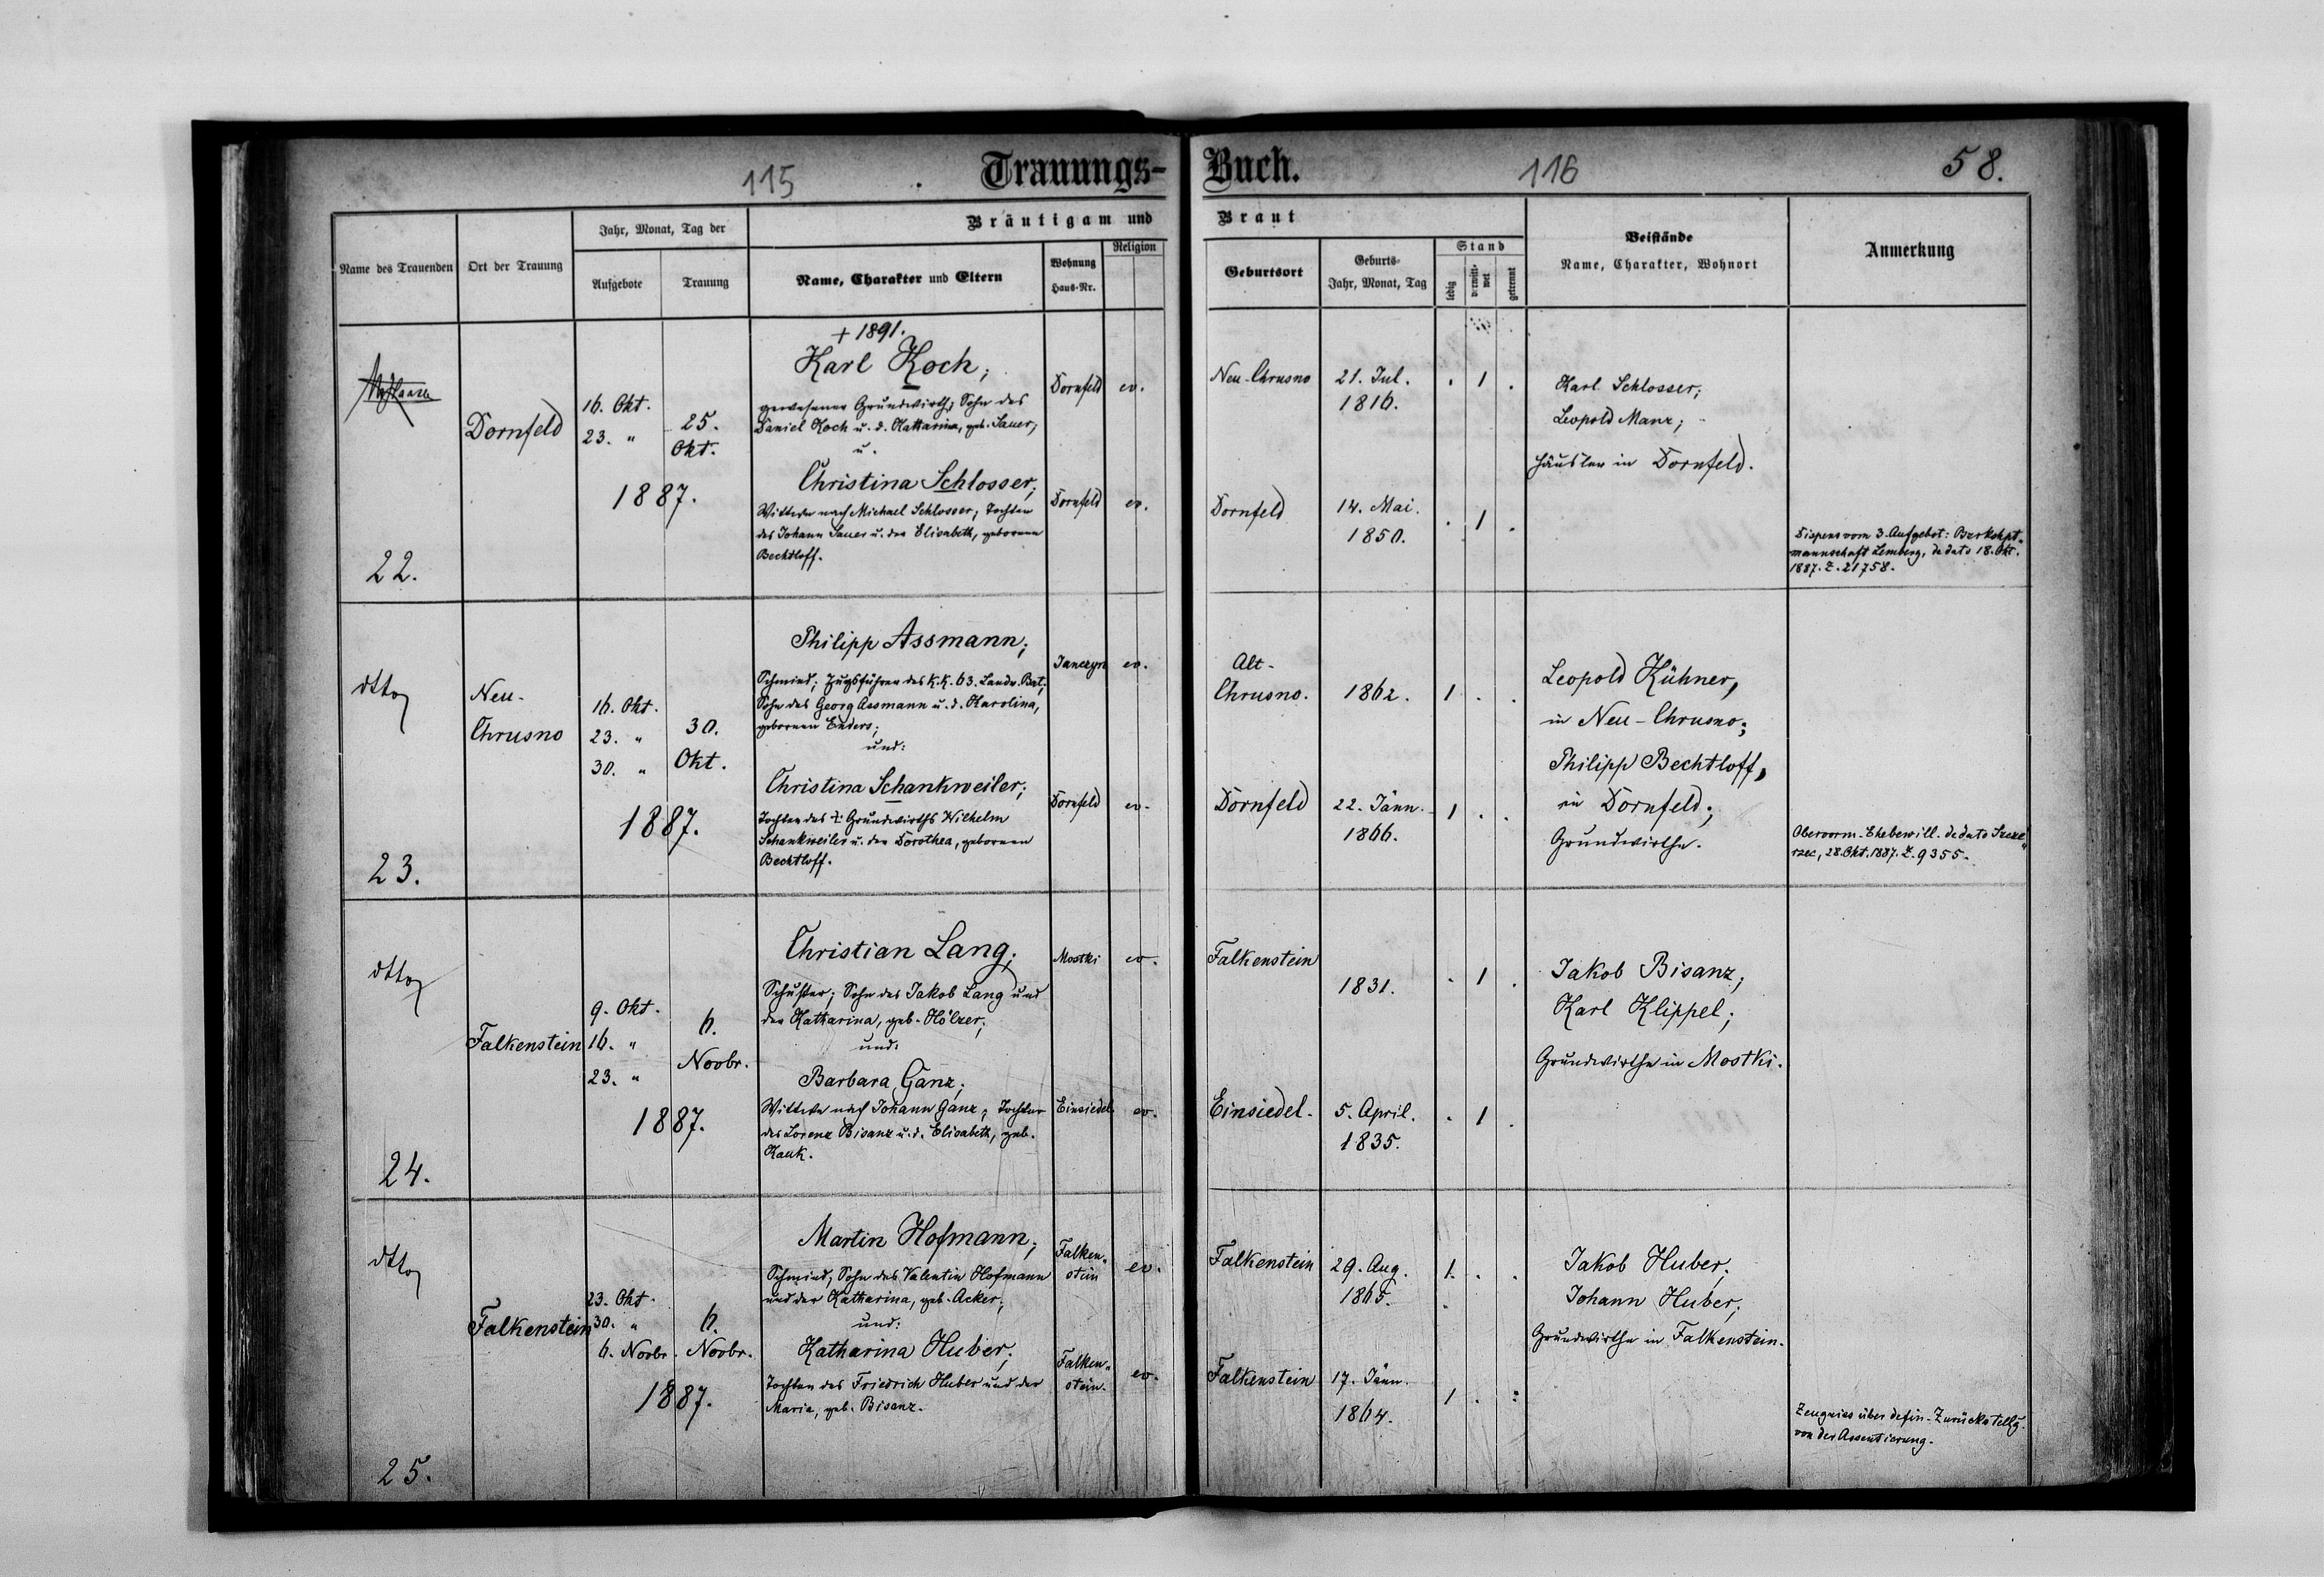 115
Trauungs-
Buch.
116
58.
Name des Trauenden
Ort der Trauung
Jahr, Monat, Tag der
Aufgebote
Trauung
Bräutigam und
Braut
Name, Charakter und Eltern
Wohnung
Haus-Nr.
Religion
Geburtsort
Geburts-
Jahr, Monat, Tag
Stand
ledig
verwitt-
wet
getrennt
Beistände
Name, Charakter, Wohnort
Anmerkung
22.
Dornfeld
16. Okt.
23. "
25.
Okt.
1887.
+ 1891.
Karl Koch;
gewesener Grundwirth; Sohn des
Daniel Koch u. d. Katharina, geb. Sauer;
u.
Christina Schlosser;
Wittwe nach Michael Schlosser; Tochter
des Johann Sauer u. der Elisabeth, geborenen
Bechtloff.
Dornfeld
ev.
Dornfeld
ev.
Neu-Chrusno
21. Jul.
1816.
. 1 .
Dornfeld
14. Mai.
1850.
. 1 .
Karl Schlosser;
Leopold Manz;
Häusler in Dornfeld.
Dispens vom 3. Aufgebot: Bzrkshpt„
mannschaft Lemberg, de dato 18. Okt.
1887. Z. 21758.
dtto
23.
Neu-
Chrusno
16. Okt.
23. "
30. "
30.
Okt.
1887.
Philipp Assmann;
Schmied; Zugsführer des k. k. 63. Landw. Bat.;
Sohn des Georg Assmann u. d. Karolina,
geborenen Enders;
und:
Christina Schankweiler;
Tochter des Grundwirths Wilhelm
Schankweiler u. der Dorothea, geborenen
Bechtloff.
Janczyn
ev.
Dornfeld
ev.
Alt-
Chrusno.
1862.
1 . .
Dornfeld
22. Jänn.
1866.
1 . .
Leopold Kühner,
in Neu-Chrusno;
Philipp Bechtloff,
in Dornfeld;
Grundwirthe.
Obervorm. Ehebewill. de dato Szcze„
rzec, 28. Okt. 1887. Z. 9355.
dtto
24.
Falkenstein
9. Okt.
16. "
23. "
6.
Novbr.
1887.
Christian Lang;
Schuster; Sohn des Jakob Lang und
der Katharina, geb. Hölzer;
und:
Barbara Ganz;
Wittwe nach Johann Ganz; Tochter
des Lorenz Bisanz u. d. Elisabeth, geb.
Kauk.
Mostki
ev.
Einsiedel
ev.
Falkenstein
1831.
. 1 .
Einsiedel.
5. April.
1835.
. 1 .
Jakob Bisanz;
Karl Klippel;
Grundwirthe in Mostki.
dtto
25.
Falkenstein
23. Okt.
30. "
6. Novbr.
6.
Novbr.
1887.
Martin Hofmann;
Schmied; Sohn des Valentin Hofmann
und der Katharina, geb. Acker;
und:
Katharina Huber;
Tochter des Friedrich Huber und der
Maria, geb. Bisanz.
Falken„
stein
ev.
Falken„
stein.
ev.
Falkenstein
29. Aug.
1865.
1. . .
Falkenstein
17. Jänn.
1864.
1 . .
Jakob Huber;
Johann Huber;
Grundwirthe in Falkenstein.
Zeugniss über defin. Zurückstellg.
von der Assentierung.